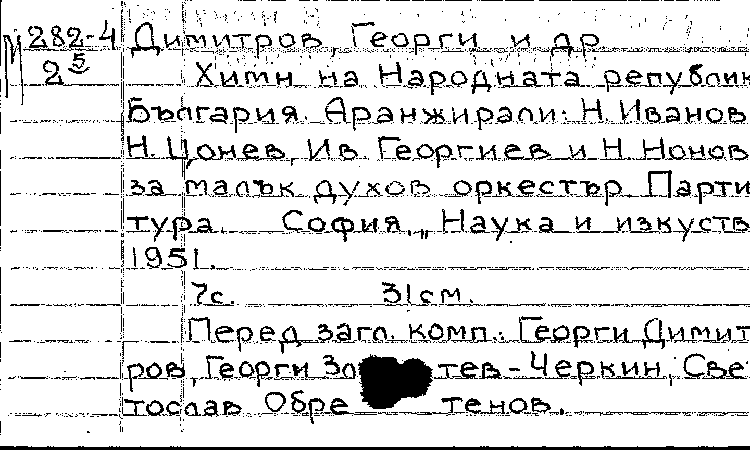 М 282-4 Димитров, Георги и др
2⁵ Химн на Народната републик
България. Аранжирали: Н. Иванов
Н. Цонев, Ив. Георгиев и Н. Нонов
за малък духов оркестър Парти
тура. София, „Наука и изкуств
1951.
7с. 31см.
Перед загл. комп.: Георги Димит
ров, Георги Зл тев-Черкин, Све
тослав Обре тенов.